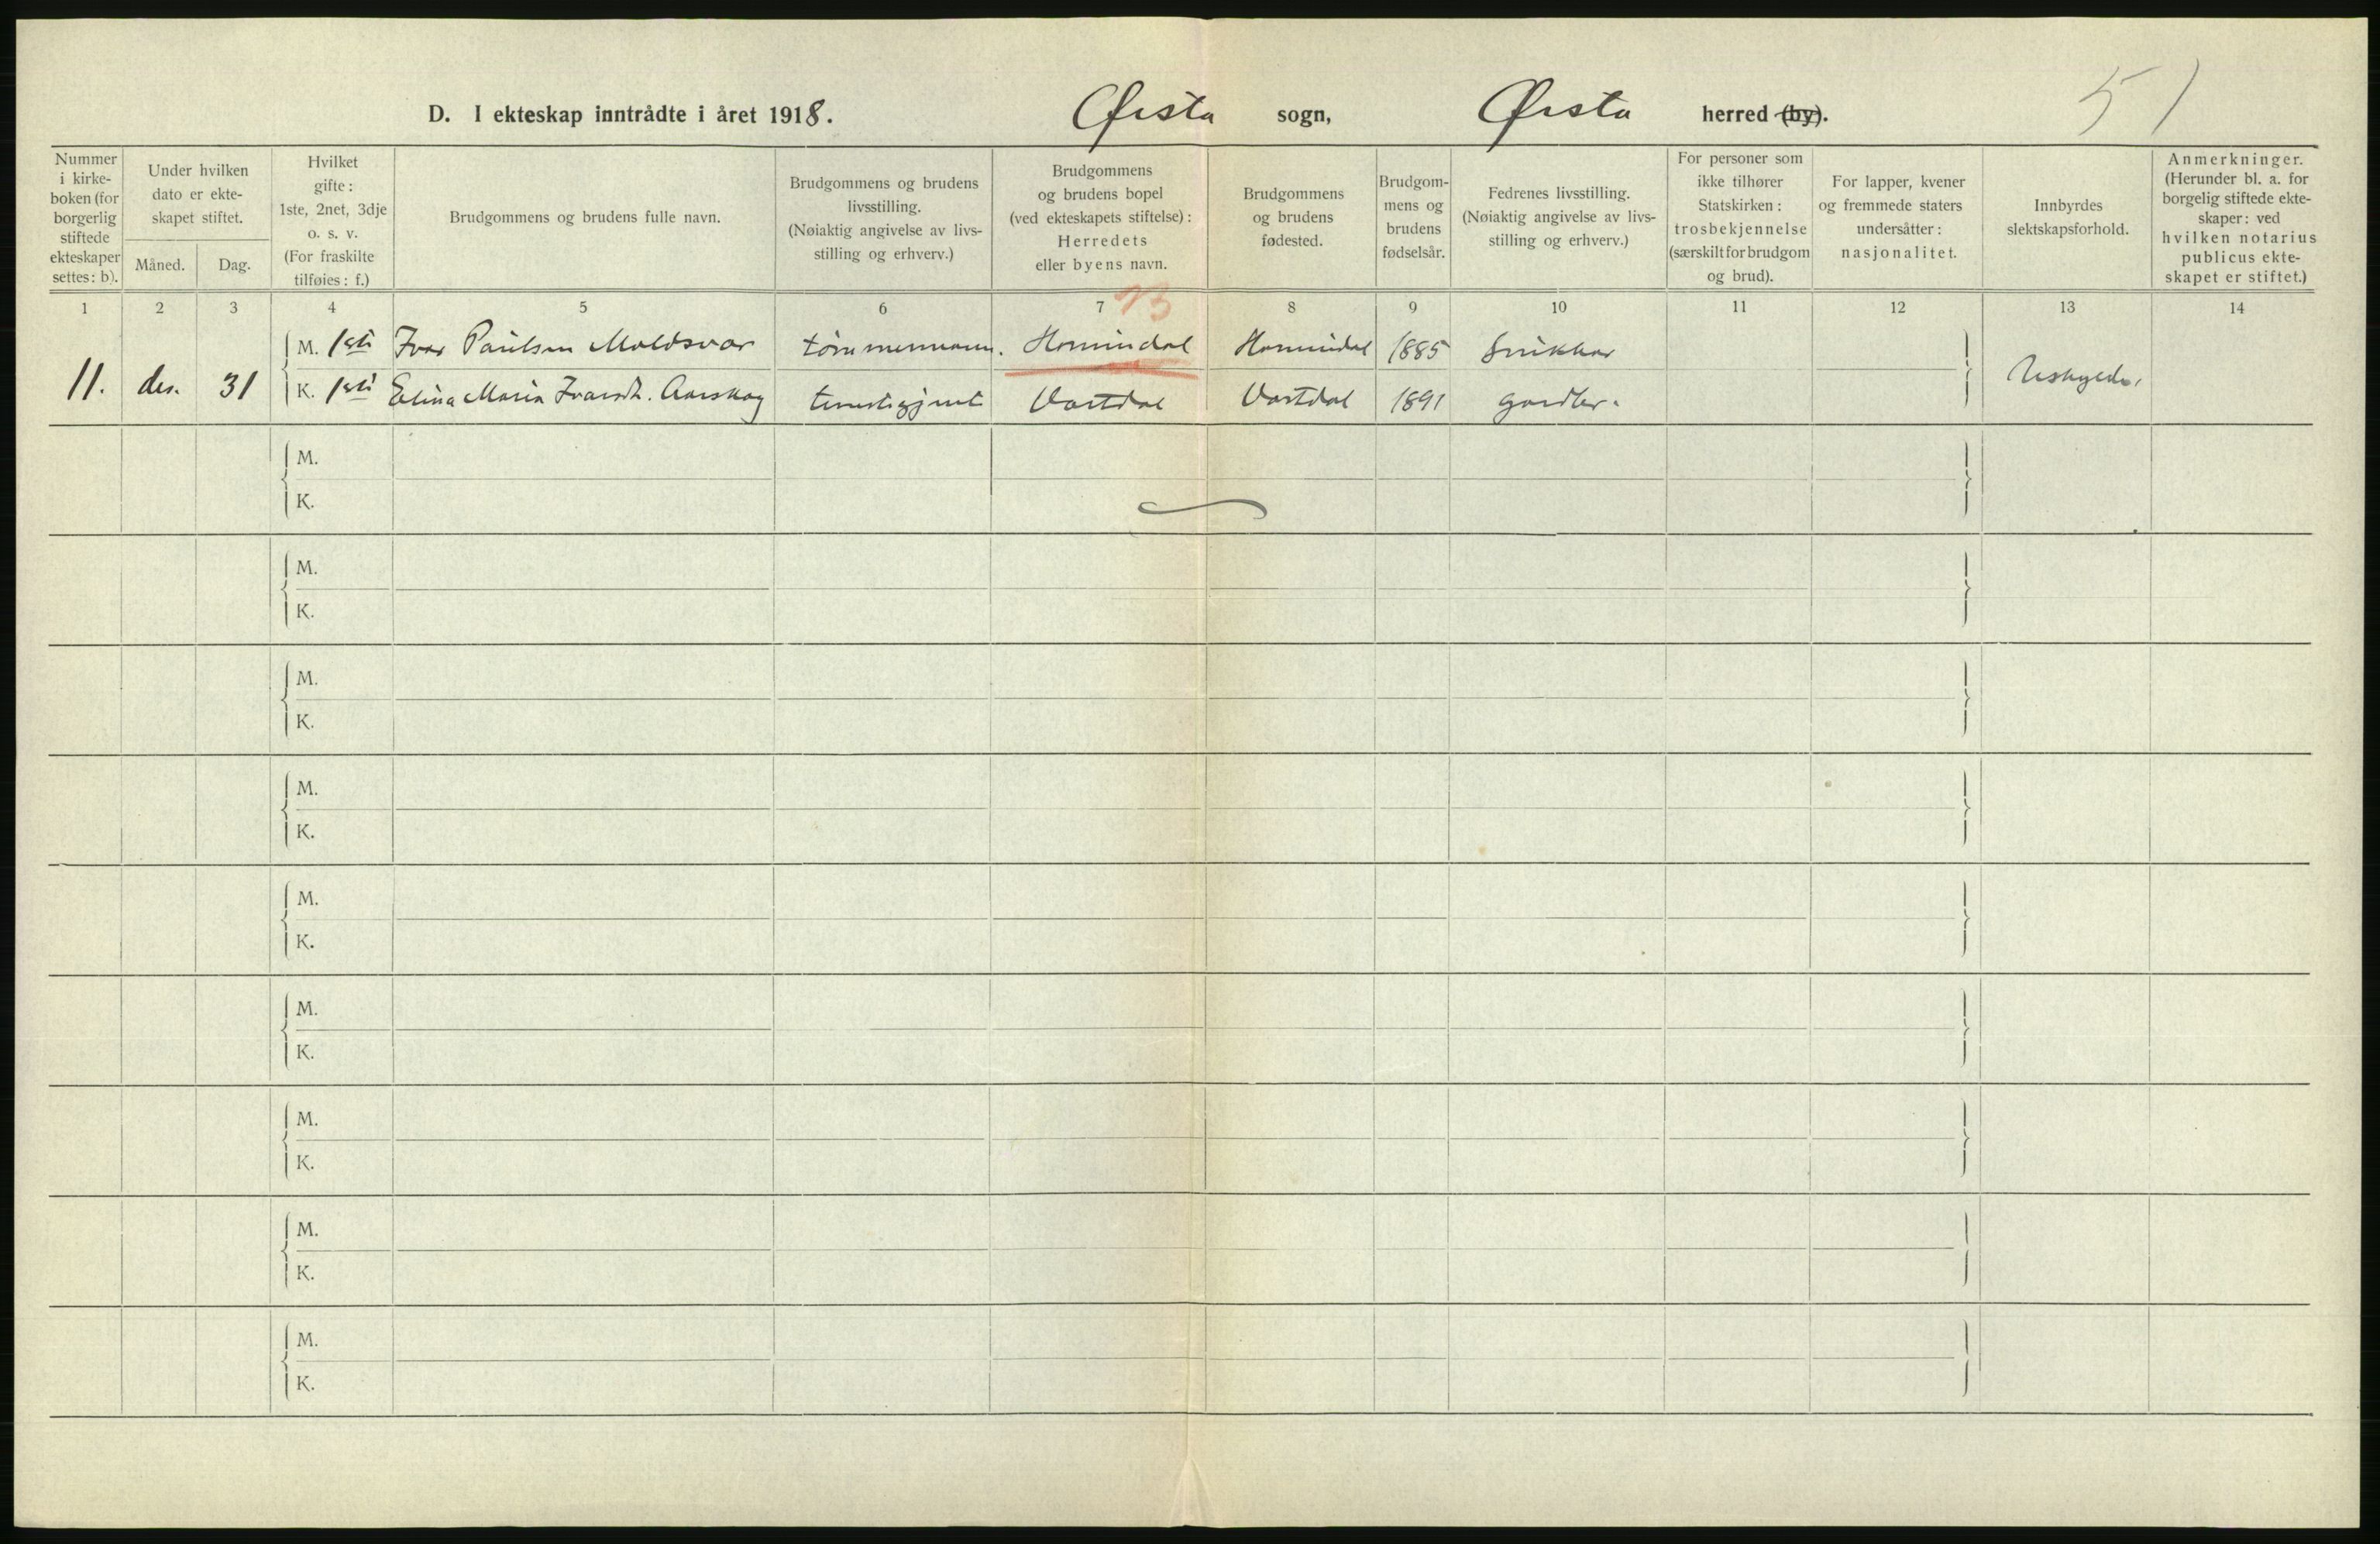 D. I ekteskap inntrådte i året 1918. Ørsta sogn, Ørsta herred (by). 51
Nummer i kirkeboken (for borgerlig stiftede ekteskaper settes: b).
Under hvilken dato er ekteskapet stiftet.
Måned. Dag.
Hvilket gifte: 1ste, 2net, 3dje o. s. v. (For fraskilte tilføies: f.)
Brudgommens og brudens fulle navn.
Brudgommens og brudens livsstilling. (Nøiaktig angivelse av livsstilling og erhverv.)
Brudgommens og brudens bopel (ved ekteskapets stiftelse): Herredets eller byens navn.
Brudgommens og brudens fødested.
Brudgommens og brudens fødselsår.
Fedrenes livsstilling. (Nøiaktig angivelse av livsstilling og erhverv.)
For personer som ikke tilhører Statskirken: trosbekjennelse (særskilt for brudgom og brud).
For lapper, kvener og fremmede staters undersåtter: nasjonalitet.
Innbyrdes slektskapsforhold.
Anmerkninger. (Herunder bl. a. for borgelig stiftede ekteskaper: ved hvilken notarius publicus ekteskapet er stiftet.)
1 2 3 4 5 6 7 13 8 9 10 11 12 13 14
M. 1ste Ivar Paulsen Moldsvor tømmermann. Hornindal Hornindal 1885 Snikkar
11. des. 31 Uskylde.
K. 1ste Elina Maria Ivarsdt. Aarskog tenestigjente Vartdal Vartdal 1891 gardbr.
M.
K.
M.
K.
M.
K.
M.
K.
M.
K.
M.
K.
M.
K.
M.
K.
M.
K.